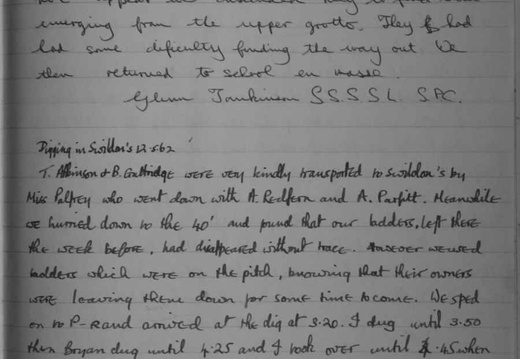 emerging from the upper grotto. They had
had some dificulty finding the way out. We
then returned to school en masse.
Glenn Tomkinson S.S.S.S.L. S.P.C.
Digging in Swildon's 12.5.62
T. Atkinson & B. Guttridge were very kindly transported to Swildon's by
Miss Palfrey who went down with A Redfern and A. Parfitt. Meanwhile
we hurried down to the 40' and found that our ladders, left there
the week before, had disappeared without trace. However we used
ladders which were on the pitch, knowing that their owners
were leaving them down for some time to come. We sped
on to P- and arrived at the dig at 3.20. I dug until 3.50
then Bryan dug until 4.25 and I took over until .45 when